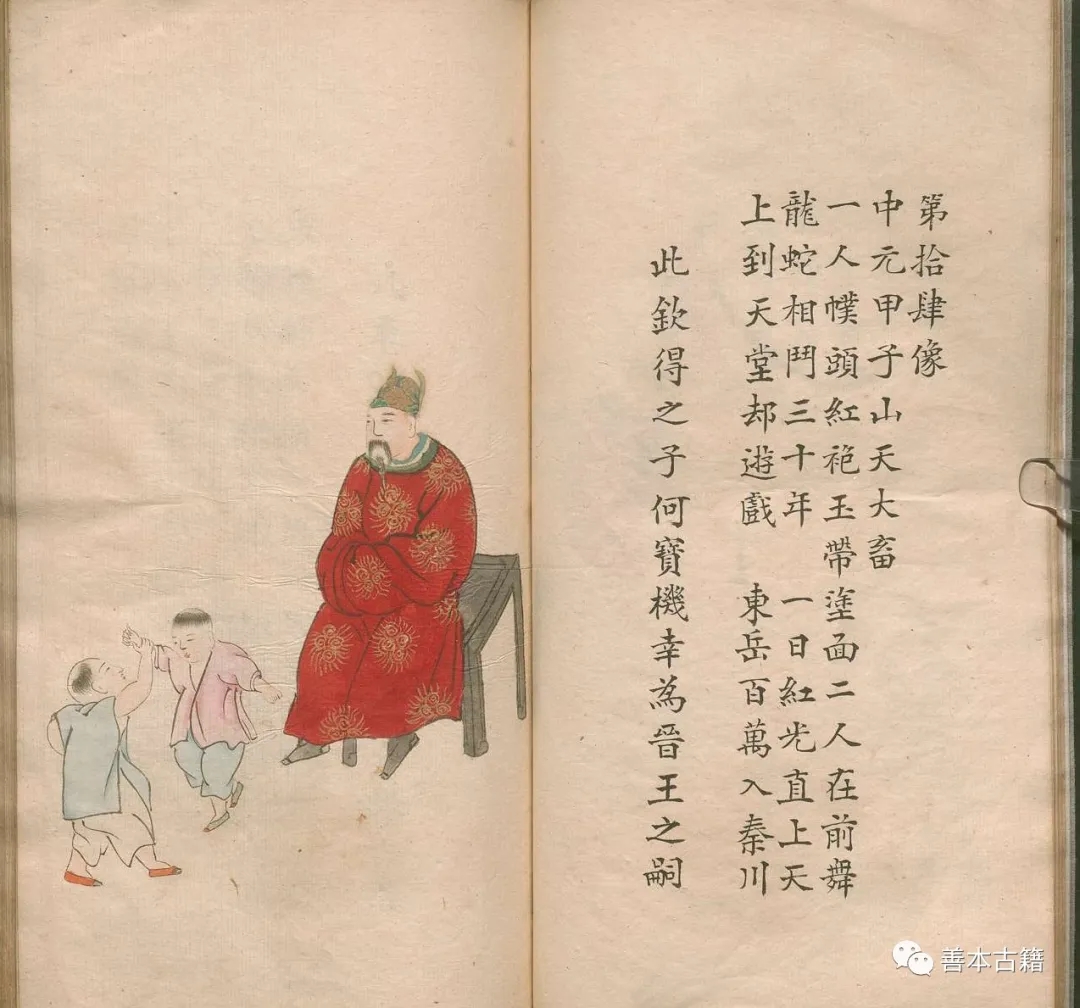 第拾肆像
中元甲子山天大畜
一人幞頭紅袍玉帶塗面二人在前舞
龍蛇相鬥三十年 一日紅光直上天
上到天堂却遊戲 東岳百萬入秦川
此欽得之子何寶機幸為晉王之嗣
善本古籍